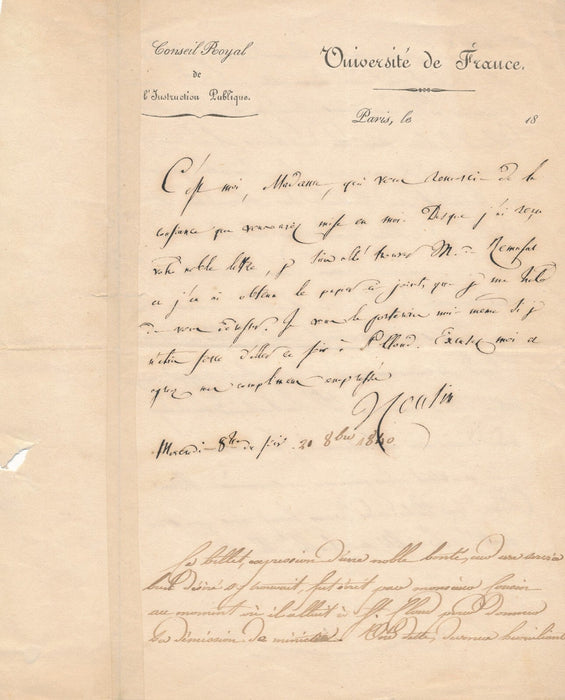 Conseil Royal
de
l'Instruction Publique.
Université de France.
Paris, le 18
C'est moi, Madame, qui vous remercie de la
confiance que vous avez mise en moi. Dès que j'ai reçu
votre noble lettre, je suis allé trouver M. de Remusat
et j'en ai obtenu le papier ci joint, que je me hâte
de vous adresser. Je vous le porterais moi même si je
n'étais forcé d'aller ce soir à St Cloud. Excusez moi et
agréez mes compliments empressés
V Cousin
Mercredi 8h de soir 21 8bre 1840
Ce billet, expression d'une noble bonté,
et fut écrit par monsieur Cousin
au moment où il allait à St Cloud pour donner
sa démission de ministre.